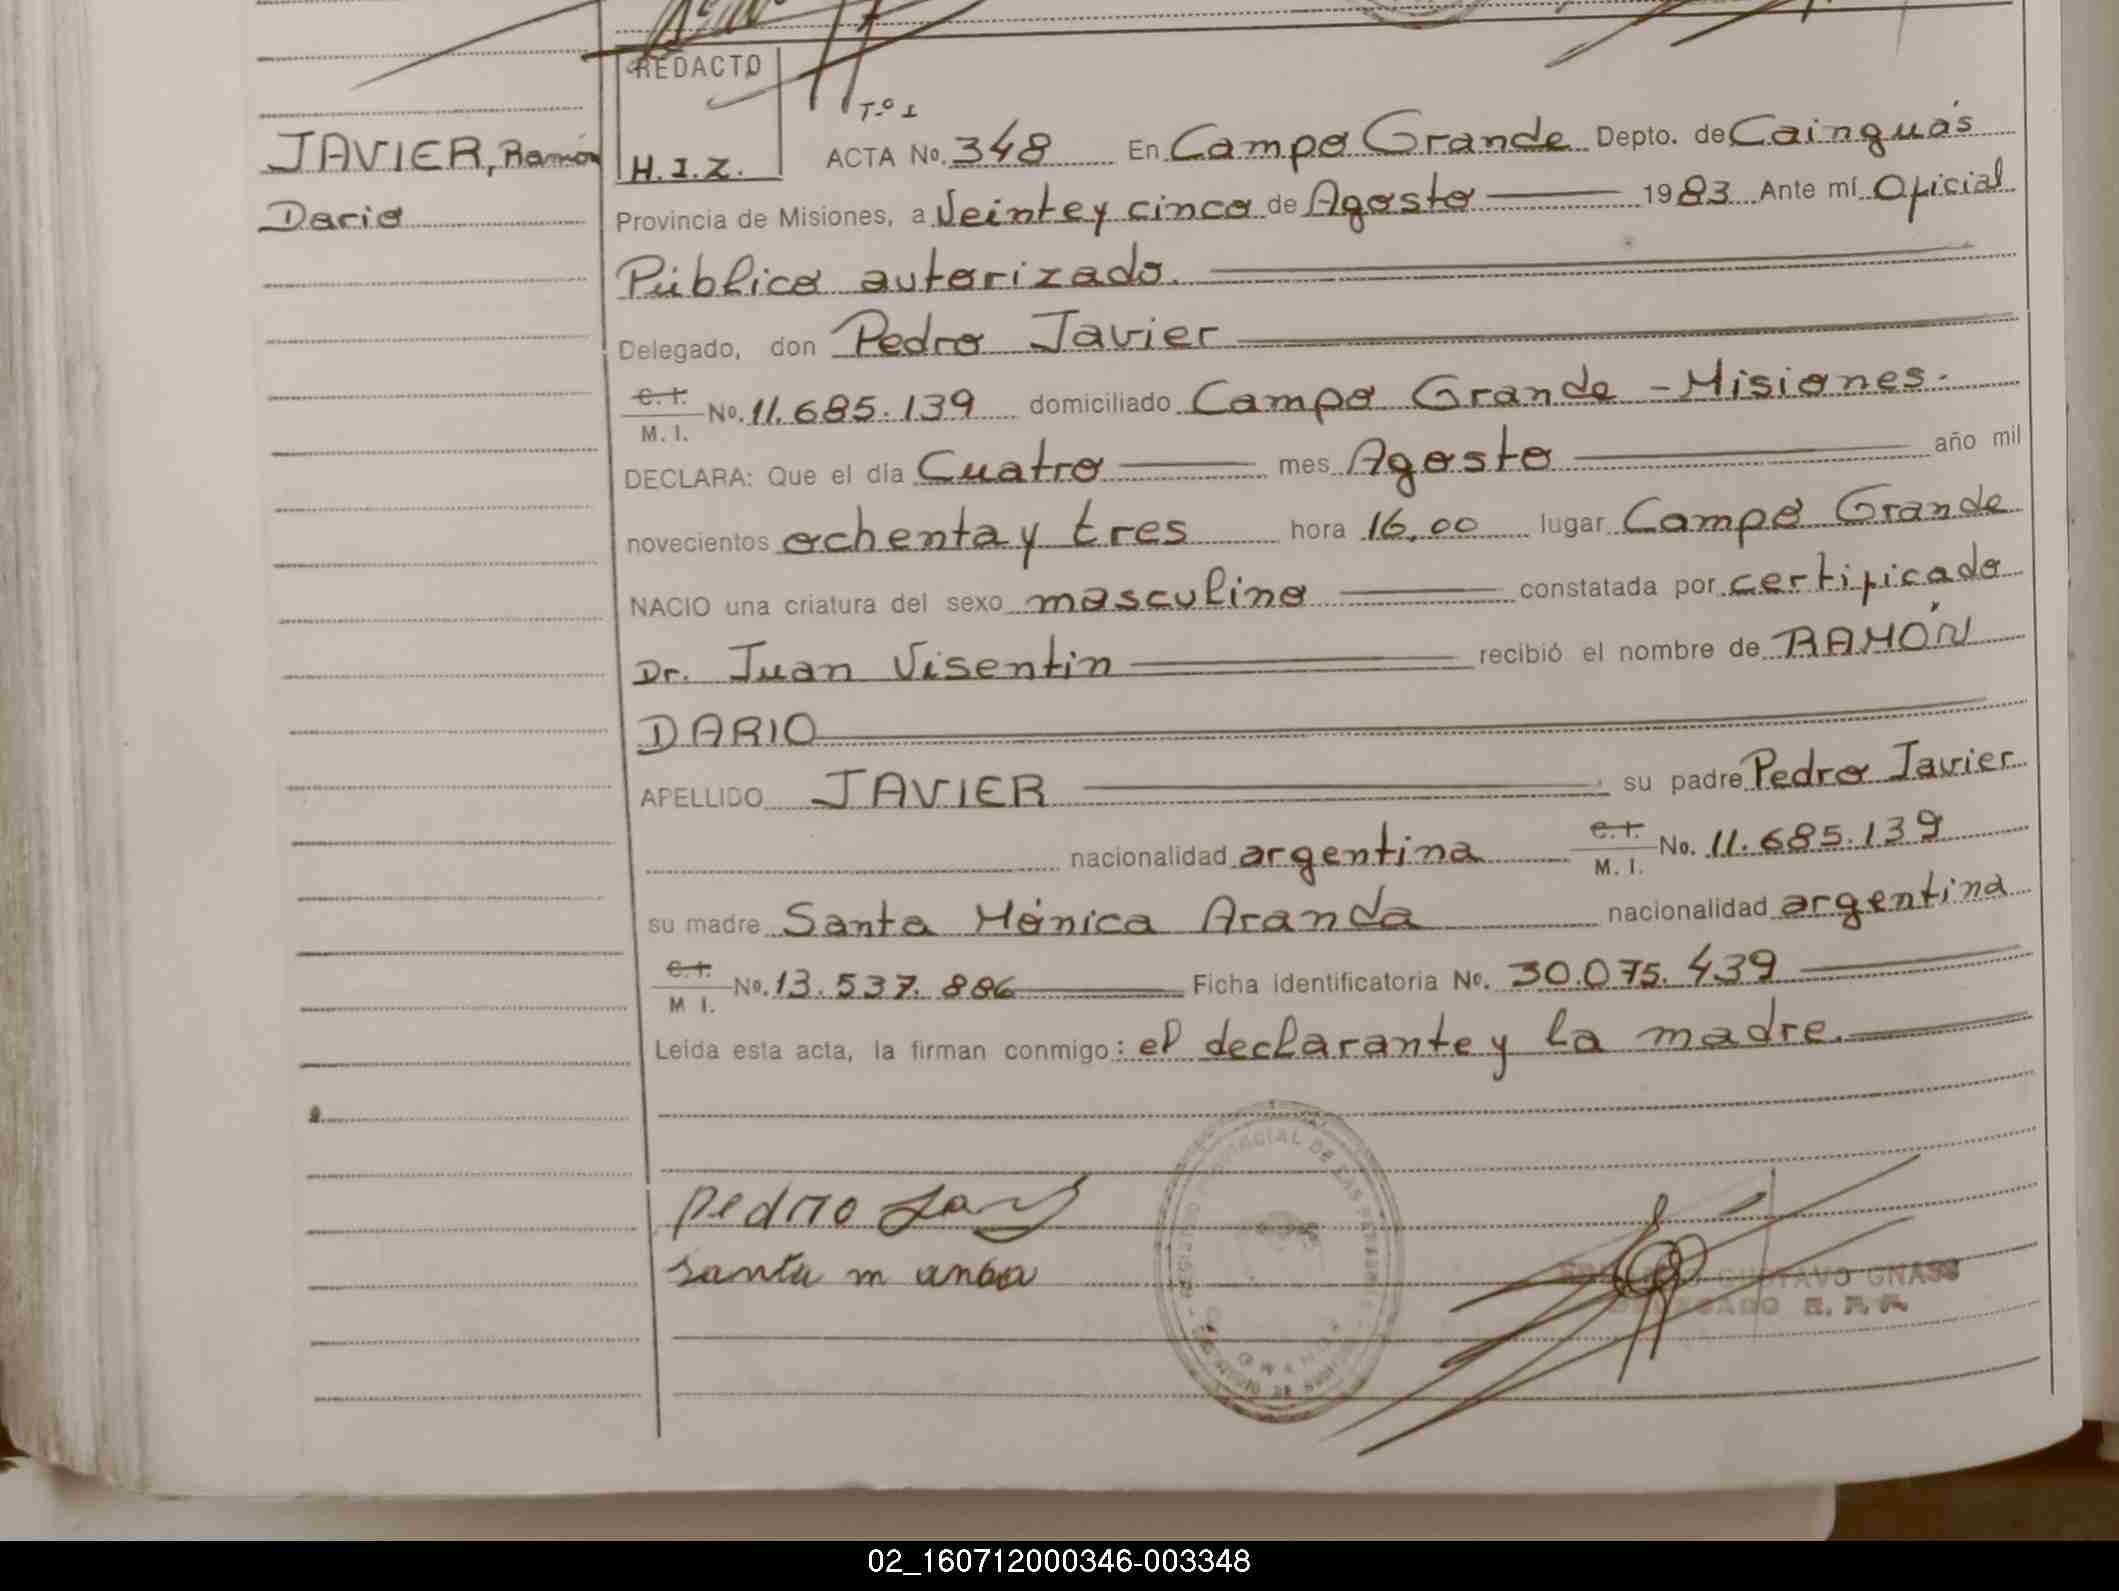 REDACTO
H.I.Z.
JAVIER, Ramón
Dario
Tº 1
ACTA No. 348 En Campo Grande Depto. de Cainguás
Provincia de Misiones, a Veinte y cinco de Agosto 1983 Ante mí Oficial
Público autorizado.
Delegado, don Pedro Javier
C.I.
M. I. No. 11.685.139 domiciliado Campo Grande - Misiones.
DECLARA: Que el día Cuatro mes Agosto año mil
novecientos ochenta y tres hora 16,00 lugar Campo Grande
NACIO una criatura del sexo masculino constatada por certificado
Dr. Juan Visentin recibió el nombre de RAMÓN
DARIO
APELLIDO JAVIER su padre Pedro Javier
nacionalidad argentina C.I.
M. I. No. 11.685.139
su madre Santa Mónica Aranda nacionalidad argentina
C.I.
M I. No. 13.537.886 Ficha identificatoria No. 30.075.439
Leída esta acta, la firman conmigo: el declarante y la madre.
Pedro
Santa m
GUSTAVO GNASS
DELEGADO R. P. P.
02_160712000346-003348